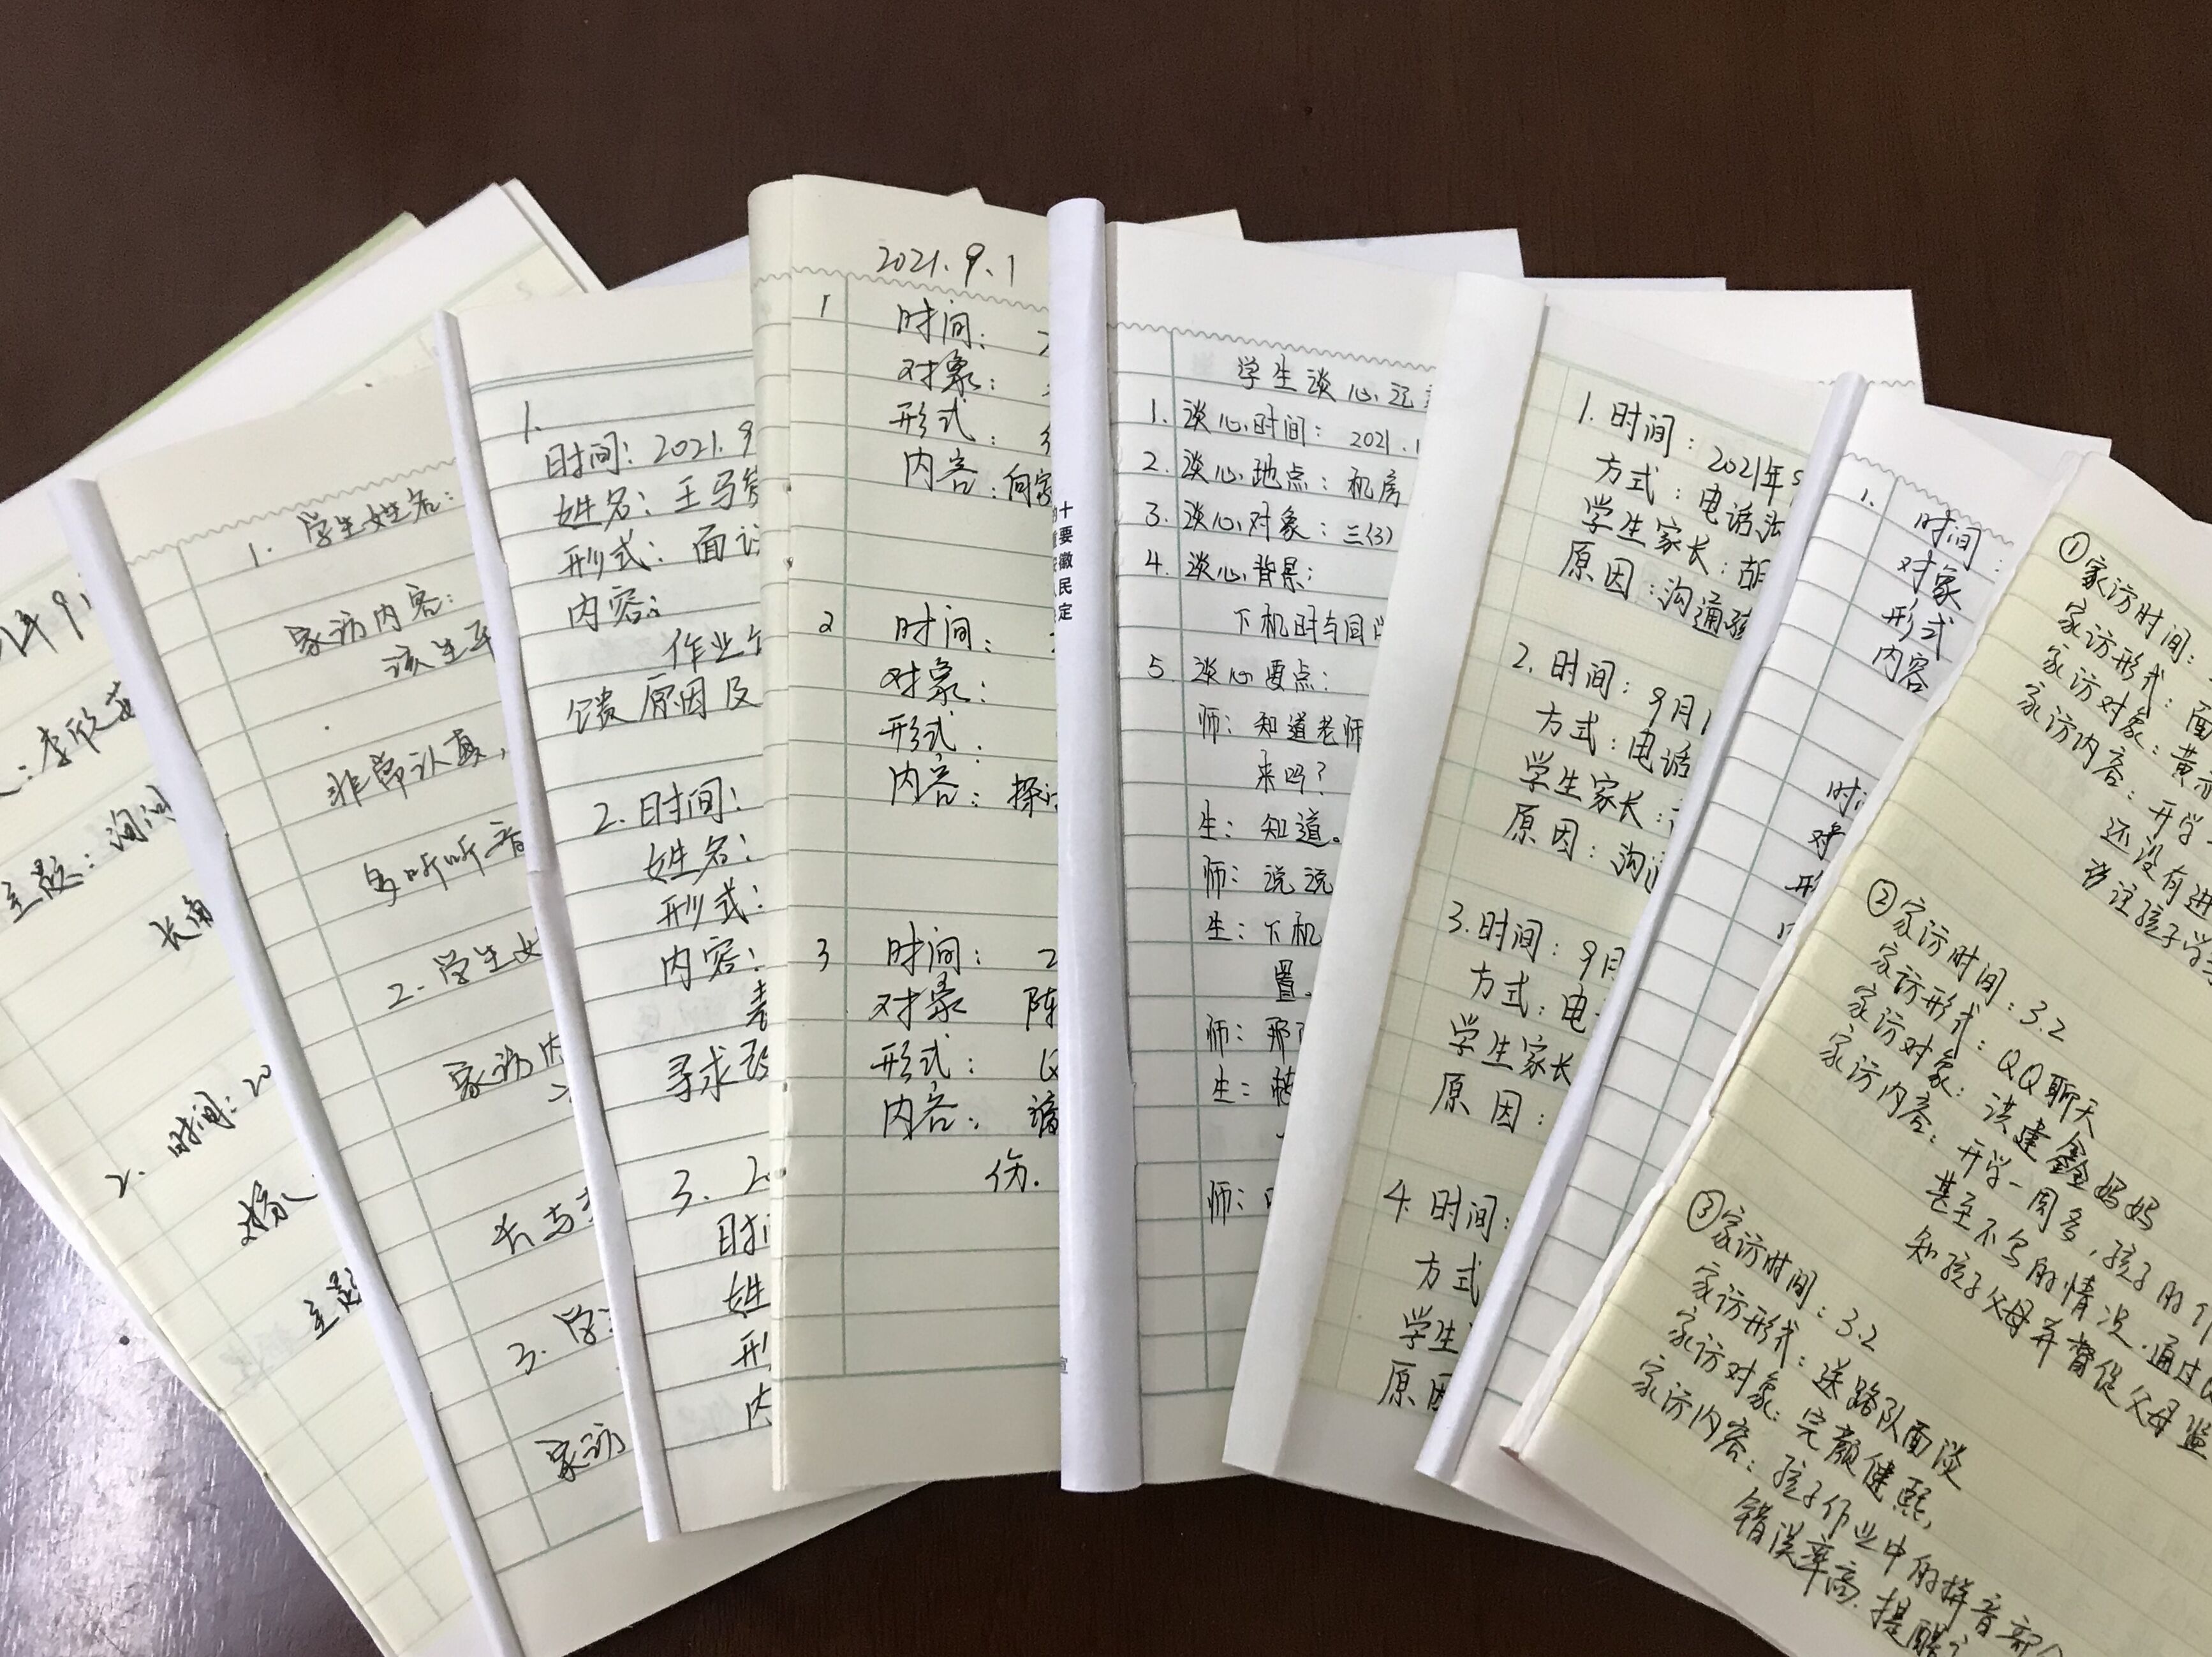 年9
李欣
主题：询问
2. 时间：20
对象
主题
1. 学生姓名：
家访内容：
该生平
非常认真，
多听听音
2. 学生
家访内
长与
3. 学
家访
1.
时间：2021.9
姓名：王马
形式：面
内容：
作业
馈原因及
2. 时间：
姓名：
形式：
内容：
寻求
3. 20
时
姓
形
内
2021.9.1
1 时间：
对象：
形式：
内容：向家
2 时间：
对象：
形式：
内容：探
3 时间：2
对象 陈
形式：
内容：
伤.
十
要
徽
民
定
学生谈心记
1. 谈心时间：2021.1
2. 谈心地点：机房
3. 谈心对象：三(3)
4. 谈心背景：
下机时与同
5. 谈心要点：
师：知道老师
来吗？
生：知道。
师：说说
生：下机
置.
师：那
生：
师：
1. 时间：2021年9
方式：电话
学生家长：胡
原因：沟通孩
2. 时间：9月1
方式：电话
学生家长：
原因：沟
3. 时间：9月
方式：电
学生家长
原因：
4. 时间：
方式
学生
原因
1. 时间：
对象
形式
内容
时
对
形
①家访时间：
家访形式：面
家访对象：黄
家访内容：开学
还没有进
孩子学
②家访时间：3.2
家访形式：QQ聊天
家访对象：洪建鑫妈妈
家访内容：开学一周多，孩子的作
甚至不写的情况.通过
知孩子父母并督促父母监
③家访时间：3.2
家访形式：送路队面谈
家访对象：完颜健熙，
家访内容：孩子作业中的拼音部
错误率高.提醒